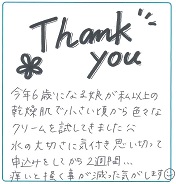 Thank
you
今年6歳になる娘が私以上の
乾燥肌で小さい頃から色々な
クリームを試してきました
水の大切さに気付き思い切って
申込みをしてから2週間…
痒いと掻く事が減った気がします